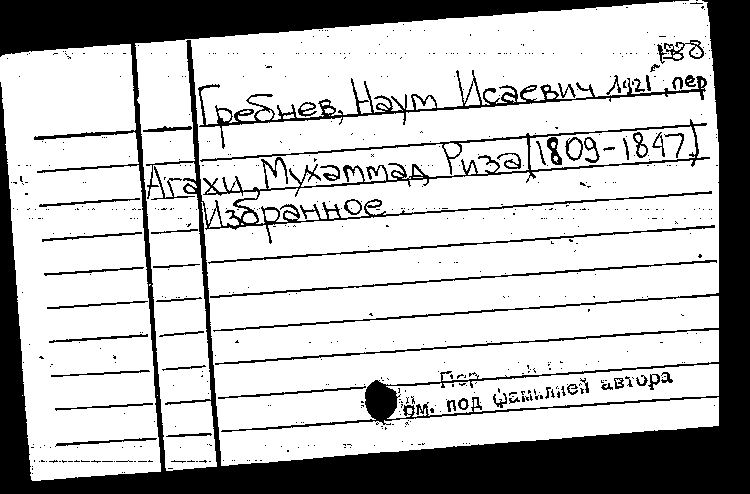 1988
Гребнев, Наум Исаевич, 1921, пер
Агахи, Мухаммад Риза (1809-1847)
Избранное
Пер
см. под фамилией автора